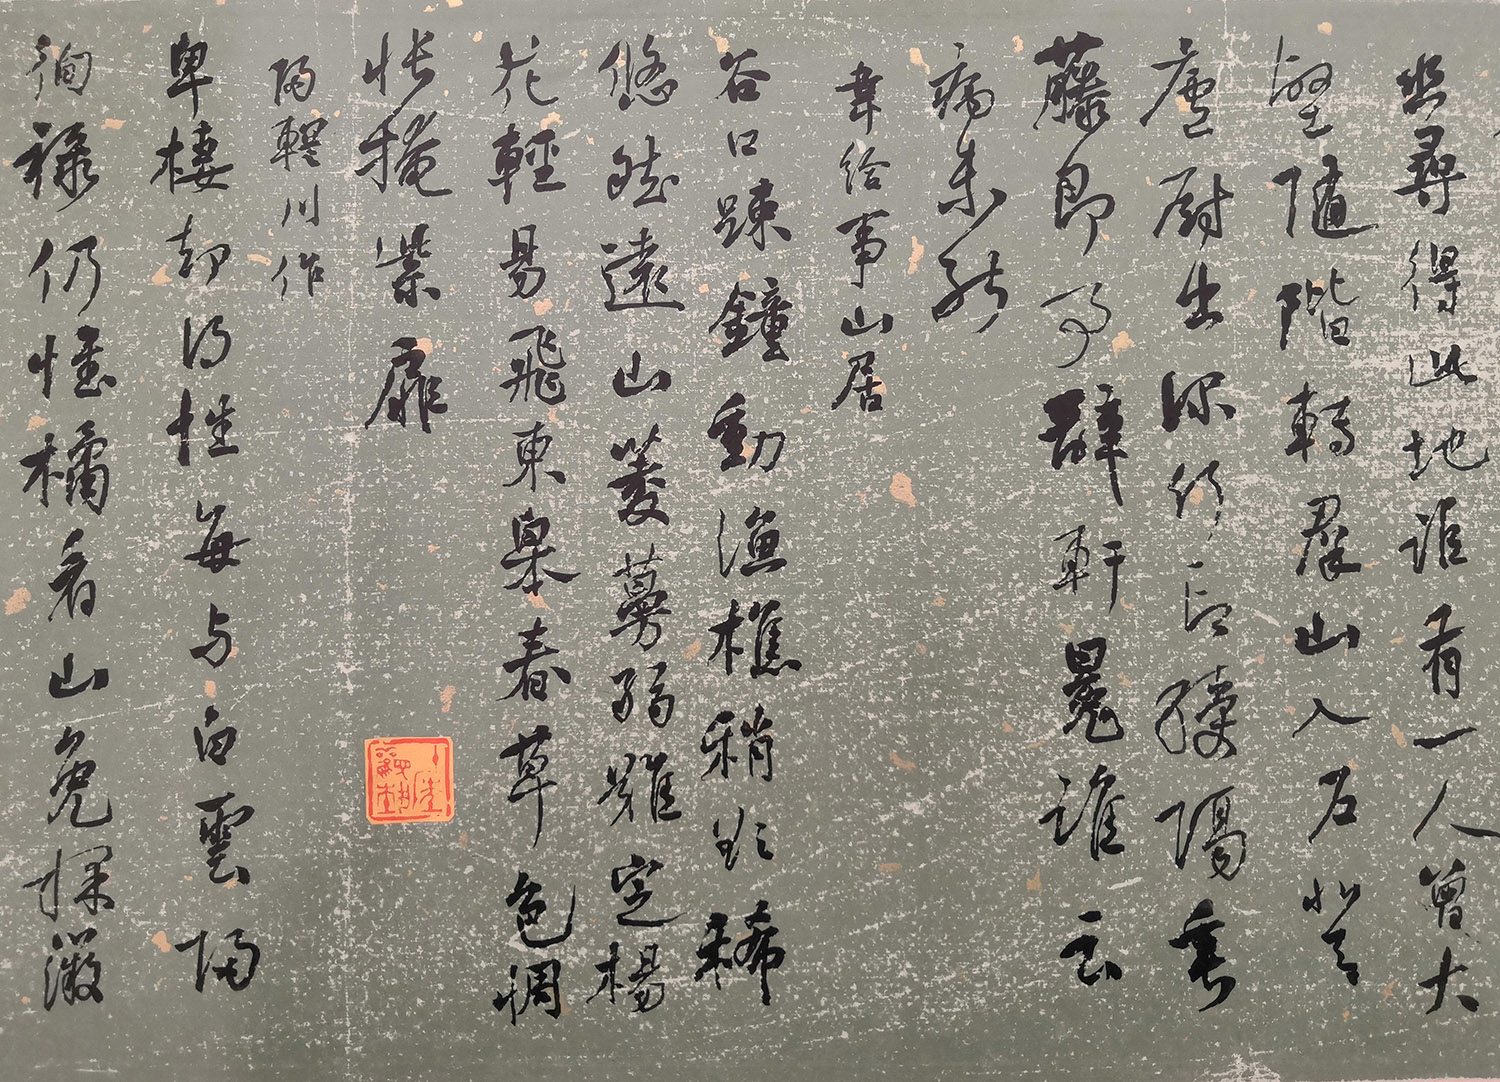 幽尋得此地詎有一人曾大
壑隨階轉羣山入戶登
庖廚出深竹印綬隔垂
藤即事辭軒冕誰云
病未能
韋給事山居
谷口踈鐘動漁樵稍欲稀
悠然遠山菱蔓弱難定楊
花輕易飛東皋春草色惆
悵掩柴扉
歸輞川作
卑棲却得性每与白雲歸
徇祿仍懷橘看山免採薇